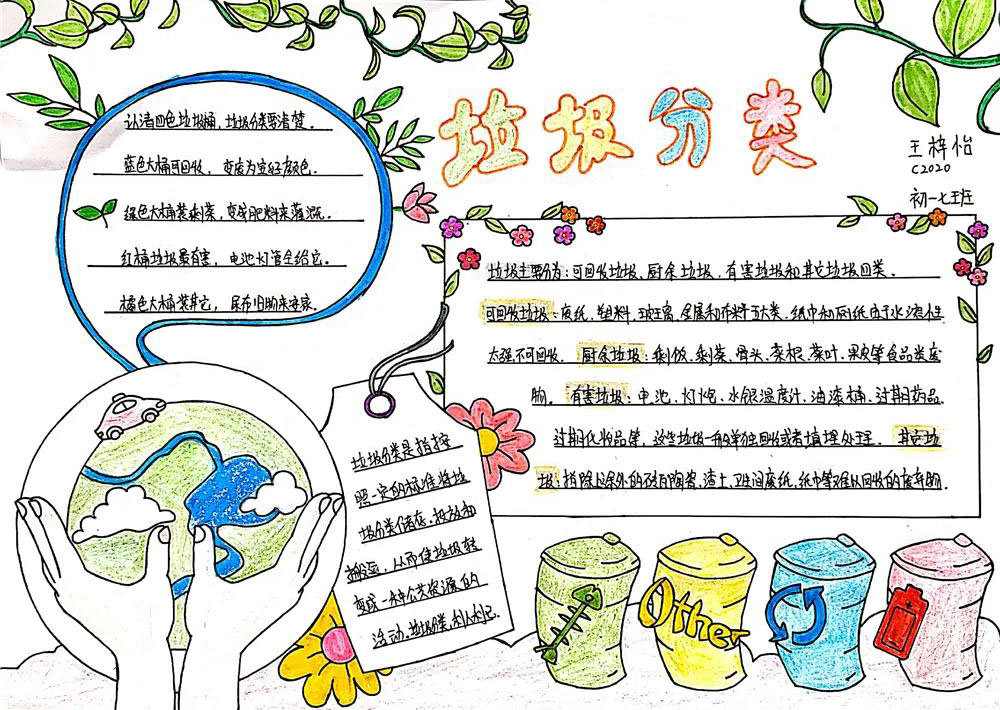 垃圾分类
王梓怡
C2020
初一七班
认清四色垃圾桶，垃圾分类要清楚。
蓝色大桶可回收，变废为宝好颜色。
绿色大桶装剩菜，变成肥料来灌溉。
红桶垃圾最有害，电池灯管全给它。
橘色大桶装其它，尿布旧物来安家。
垃圾主要分为：可回收垃圾、厨余垃圾、有害垃圾和其它垃圾四类。
可回收垃圾：废纸、塑料、玻璃、金属和布料五大类、纸巾和厕纸由于水溶性
太强不可回收。厨余垃圾：剩饭、剩菜、骨头、菜根、菜叶、果皮等食品类废
物。有害垃圾：电池、灯炮、水银温度计、油漆桶、过期药品、
过期化妆品等，这些垃圾一般单独回收或者填埋处理。其它垃
圾：指除上除外的砖瓦陶瓷、渣土、卫生间废纸、纸巾等难以回收的废弃物.
垃圾分类是指按
照一定的标准将垃
圾分类储存、投放和
搬运，从而使垃圾转
变成一种公共资源的
活动。垃圾分类，利人利己.
Other